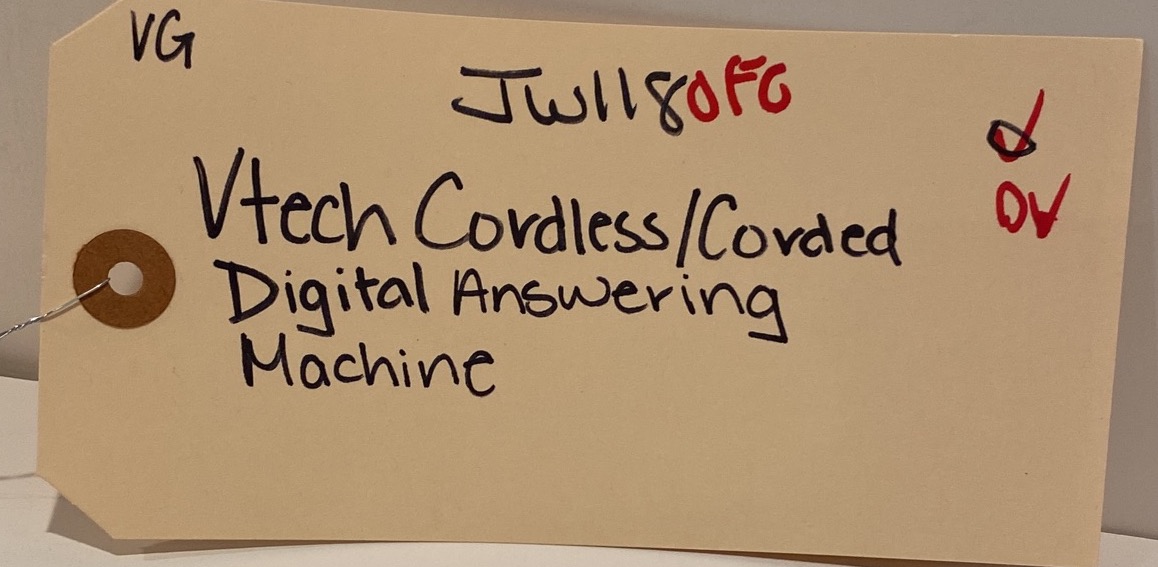 VG
JW118OFC
OV
Vtech Cordless/Corded
Digital Answering
Machine